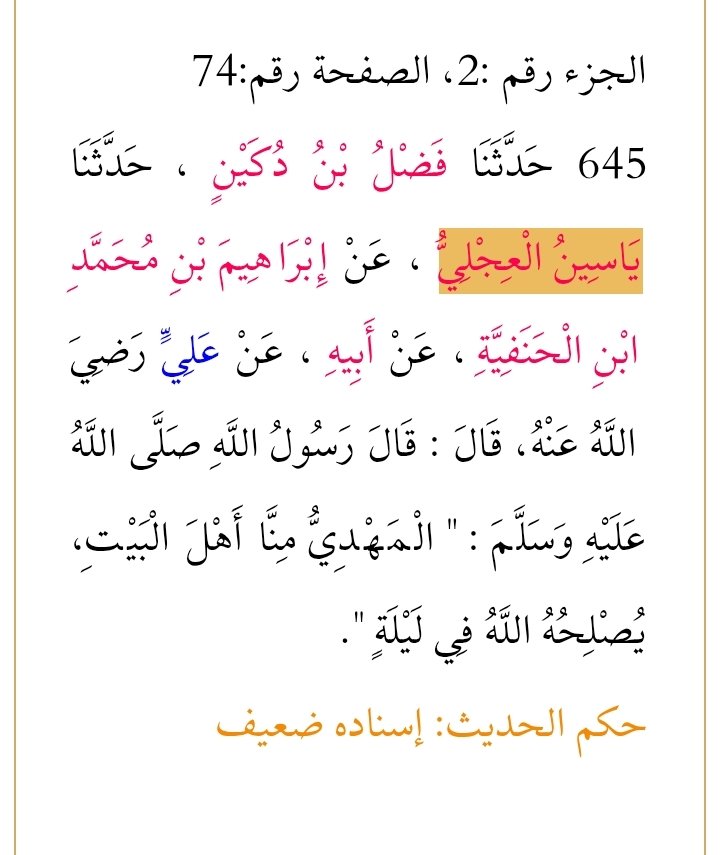 الجزء رقم :2، الصفحة رقم:74
645 حَدَّثَنَا فَضْلُ بْنُ دُكَيْنٍ ، حَدَّثَنَا
يَاسِينُ الْعِجْلِيُّ ، عَنْ إِبْرَاهِيمَ بْنِ مُحَمَّدِ
ابْنِ الْحَنَفِيَّةِ ، عَنْ أَبِيهِ ، عَنْ عَلِيٍّ رَضِيَ
اللَّهُ عَنْهُ، قَالَ : قَالَ رَسُولُ اللَّهِ صَلَّى اللَّهُ
عَلَيْهِ وَسَلَّمَ : " الْمَهْدِيُّ مِنَّا أَهْلَ الْبَيْتِ،
يُصْلِحُهُ اللَّهُ فِي لَيْلَةٍ ".
حكم الحديث: إسناده ضعيف